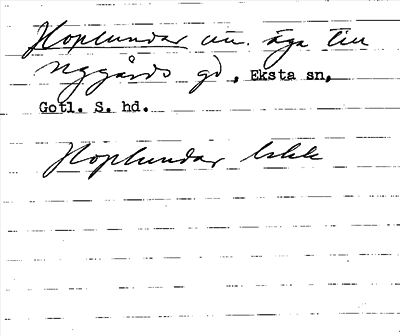 Hoplundar un. äga till
Nygårds gd, Eksta sn,
Gotl. S. hd.
Hoplundar